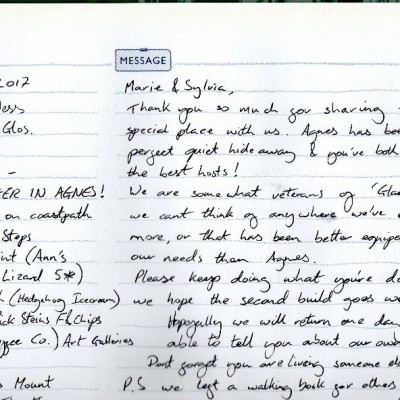 MESSAGE
2017
Marie & Sylvia,
Thank you so much for sharing
Glos.
special place with us. Agnes has been
perfect quiet hideaway & you've both
the best hosts!
IN AGNES!
We are somewhat veterans of
on coastpath
we cant think of anywhere we've
Steps
more, or that has been better
(Ann's
our needs than Agnes.
Lizard 5*)
Please keep doing what you're
(Hedgehog Icecream)
we hope the second build goes
Steins F&Chips
Hopefully we will return one day
Co.) Art Galleries
able to tell you about our
Dont forget you are living someone
Mount
P.S we left a walking book for others